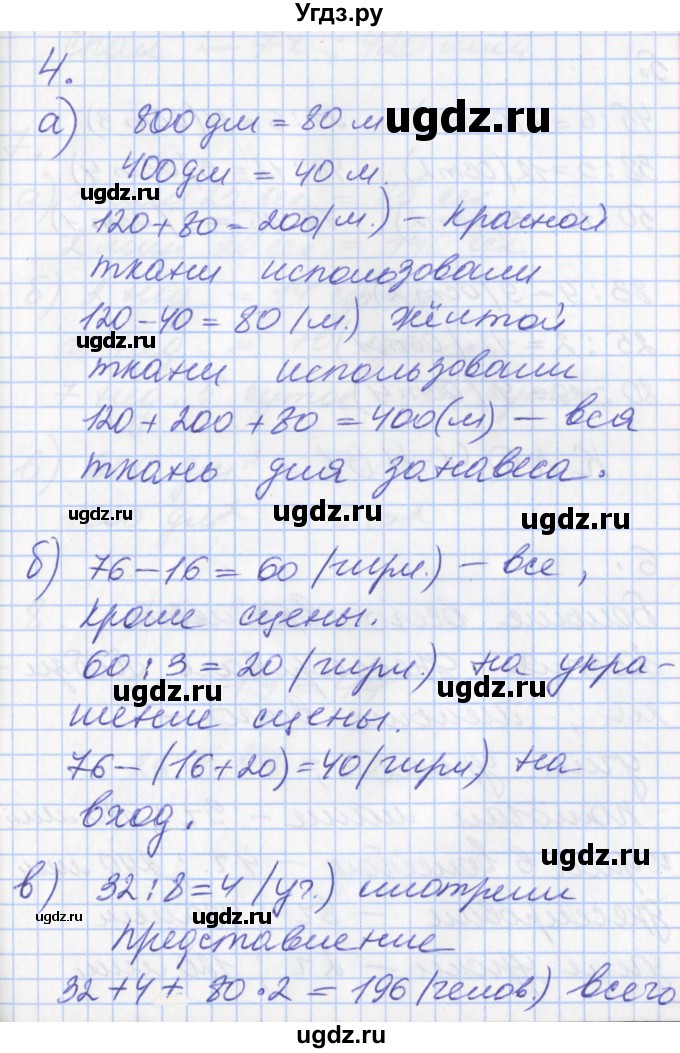 Угдз.ру
4.
а) 800 дм = 80 м
ugdz.ru
400 дм = 40 м.
ugdz.ru
120+80=200(м.) – красной
ткани использовали
120-40=80(м.) жёлтой
ugdz.ru
ткани использовали
120+200+80=400(м) – вся
ткань для занавеса.
ugdz.ru ugdz.ru ugdz.ru
б) 76-16=60(гирл.) – все,
кроме сцены.
60:3=20(гирл.) на укра-
ugdz.ru ugdz.ru
шение сцены.
76-(16+20)=40(гирл) на
вход.
ugdz.ru ugdz.ru
в) 32:8=4(уч.) смотрели
ugdz.ru ugdz.ru ugdz.ru
представление
32+4+80·2=196(челов.) всего
ugdz.ru